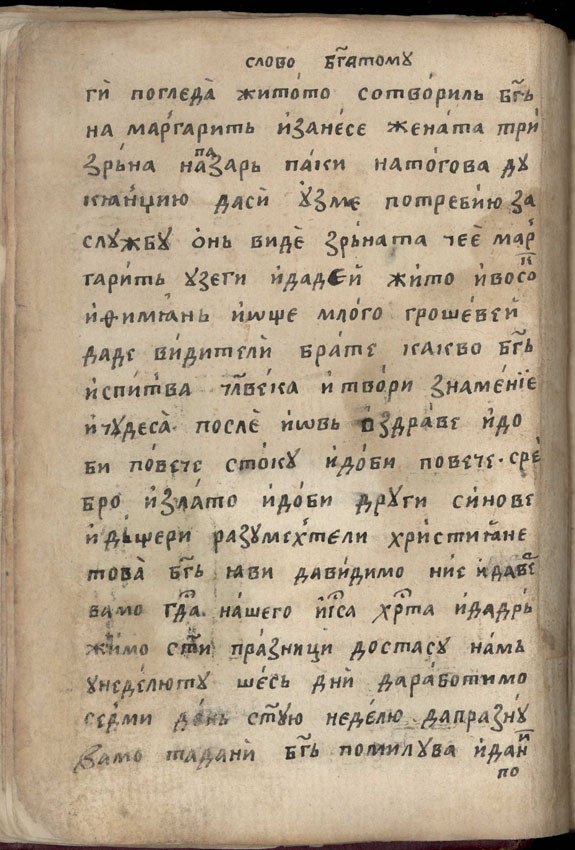 слово бг҃атому
гѝ погледа̀ жито́то сотвори́ль бг҃ь
на маргарить и҆зане́се жена́та три́
зрь́на напазарь па́ки нато́гова ду
кꙗ́нцию даси̑ ᲂу҆зме потреби́ю за
слу́жбу ѻ҆нь видѐ зрь́ната чеѐ мар̾
гари́ть узеги и҆даде́й жи́то и҆восо́к
и҆ѳимїа́нь и҆ѡще мло́го гроше́вей
даде ви́дители̑ бра́те ка́кво бг҃ь
и҆спи́тва чл҃ве́ка и҆тво́ри знаме́нїе
и҆чꙋдеса̀ после̑ и҆ѡвь ѡ҆здра́ве и҆до
би по́вече сто́ку и҆до́би пове́че. сре
бро и҆зла́то и҆до́би други си́нове
и҆дь́щери разумѣ́хте́ли христиꙗ́не
това̀ бг҃ь ꙗ҆ви дави́димо ни́е и҆даве́
вамо гд҃а. на́шего и҆ї҃са хр҃та и҆дадрь́
жи́мо ст҃и пра́зници достасу намь
унеде́люту ше́сь днѝ дара́ботимо
се́дми де́нь ст҃ую неде́лю. дапразну́
вамо тадани̑ бг҃ь поми́лува и҆дани́
по